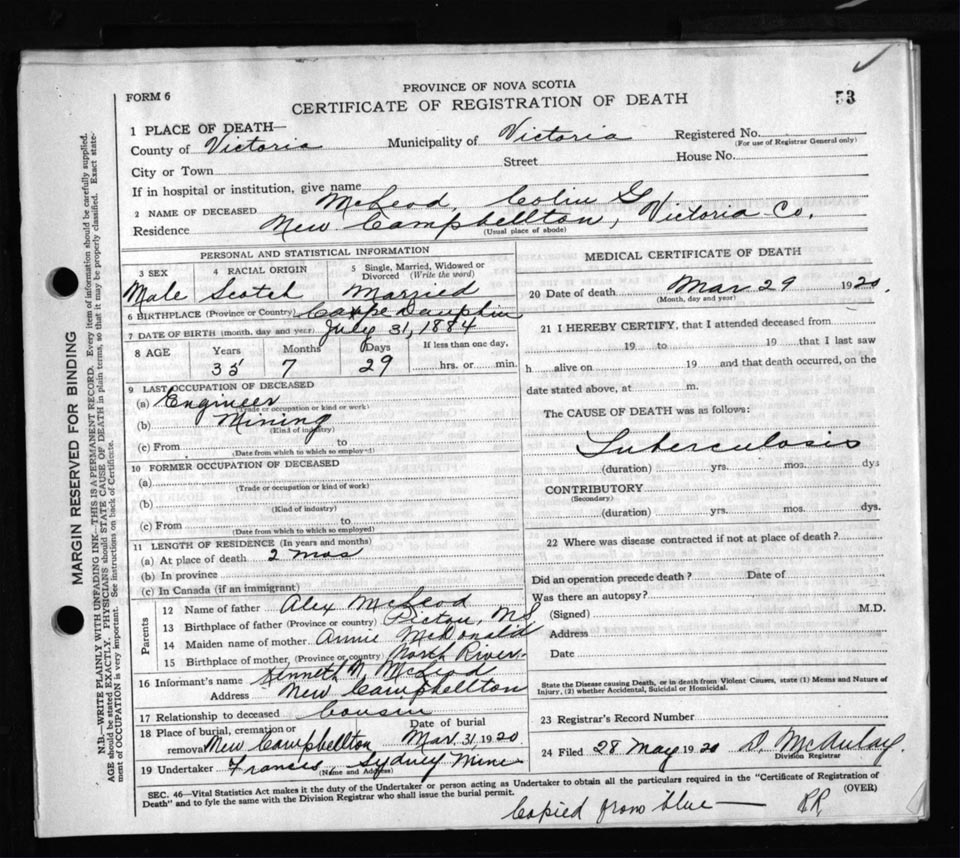 PROVINCE OF NOVA SCOTIA
FORM 6
CERTIFICATE OF REGISTRATION OF DEATH
53
1 PLACE OF DEATH—
County of Victoria Municipality of Victoria Registered No.
(For use of Registrar General only)
City or Town Street House No.
If in hospital or institution, give name
2 NAME OF DECEASED McLeod, Colin G.
Residence New Campbellton, Victoria Co.
(Usual place of abode)
PERSONAL AND STATISTICAL INFORMATION
3 SEX 4 RACIAL ORIGIN 5 Single, Married, Widowed or Divorced (Write the word)
Male Scotch Married
6 BIRTHPLACE (Province or Country) Cape Dauphin
7 DATE OF BIRTH (month, day and year) July 31, 1884
8 AGE Years Months Days If less than one day,
35 7 29 hrs. or min.
9 LAST OCCUPATION OF DECEASED
(a) Engineer
(Trade or occupation or kind or work)
(b) Mining
(Kind of industry)
(c) From to
(Date from which to which so employed)
10 FORMER OCCUPATION OF DECEASED
(a)
(Trade or occupation or kind of work)
(b)
(Kind of industry)
(c) From to
(Date from which to which so employed)
11 LENGTH OF RESIDENCE (In years and months)
(a) At place of death 2 mos
(b) In province
(c) In Canada (if an immigrant)
Parents
12 Name of father Alex McLeod
13 Birthplace of father (Province or country) Pictou, NS
14 Maiden name of mother Annie McDonald
15 Birthplace of mother, (Province or country) North River
16 Informant's name Kenneth N. McLeod
Address New Campbellton
17 Relationship to deceased Cousin
18 Place of burial, cremation or removal New Campbellton Date of burial Mar. 31 1920
19 Undertaker Francis, Sydney Mine
(Name and Address)
MEDICAL CERTIFICATE OF DEATH
20 Date of death Mar 29 1920.
(Month, day and year)
21 I HEREBY CERTIFY, that I attended deceased from
19 to 19 that I last saw
h alive on 19 and that death occurred, on the
date stated above, at m.
The CAUSE OF DEATH was as follows:
Tuberculosis
(duration) yrs. mos. dys
CONTRIBUTORY
(Secondary)
(duration) yrs. mos. dys.
22 Where was disease contracted if not at place of death?
Did an operation precede death? Date of
Was there an autopsy?
(Signed) M.D.
Address
Date
State the Disease causing Death, or in death from Violent Causes, state (1) Means and Nature of
Injury, (2) whether Accidental, Suicidal or Homicidal.
23 Registrar's Record Number
24 Filed 28 May 1920 D. McAulay.
Division Registrar
SEC. 46—Vital Statistics Act makes it the duty of the Undertaker or person acting as Undertaker to obtain all the particulars required in the "Certificate of Registration of
Death" and to fyle the same with the Division Registrar who shall issue the burial permit.
(OVER)
Copied from blue— RR
MARGIN RESERVED FOR BINDING
N.B.—WRITE PLAINLY WITH UNFADING INK.—THIS IS A PERMANENT RECORD. Every item of information should be carefully supplied.
AGE should be stated EXACTLY. PHYSICIANS should STATE CAUSE OF DEATH in plain terms, so that it may be properly classified. Exact state-
ment of OCCUPATION is very important. See instructions on back of Certificate.